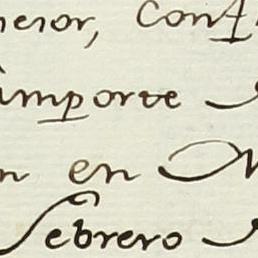 nesor, Conf
importe
n en M
Febrero